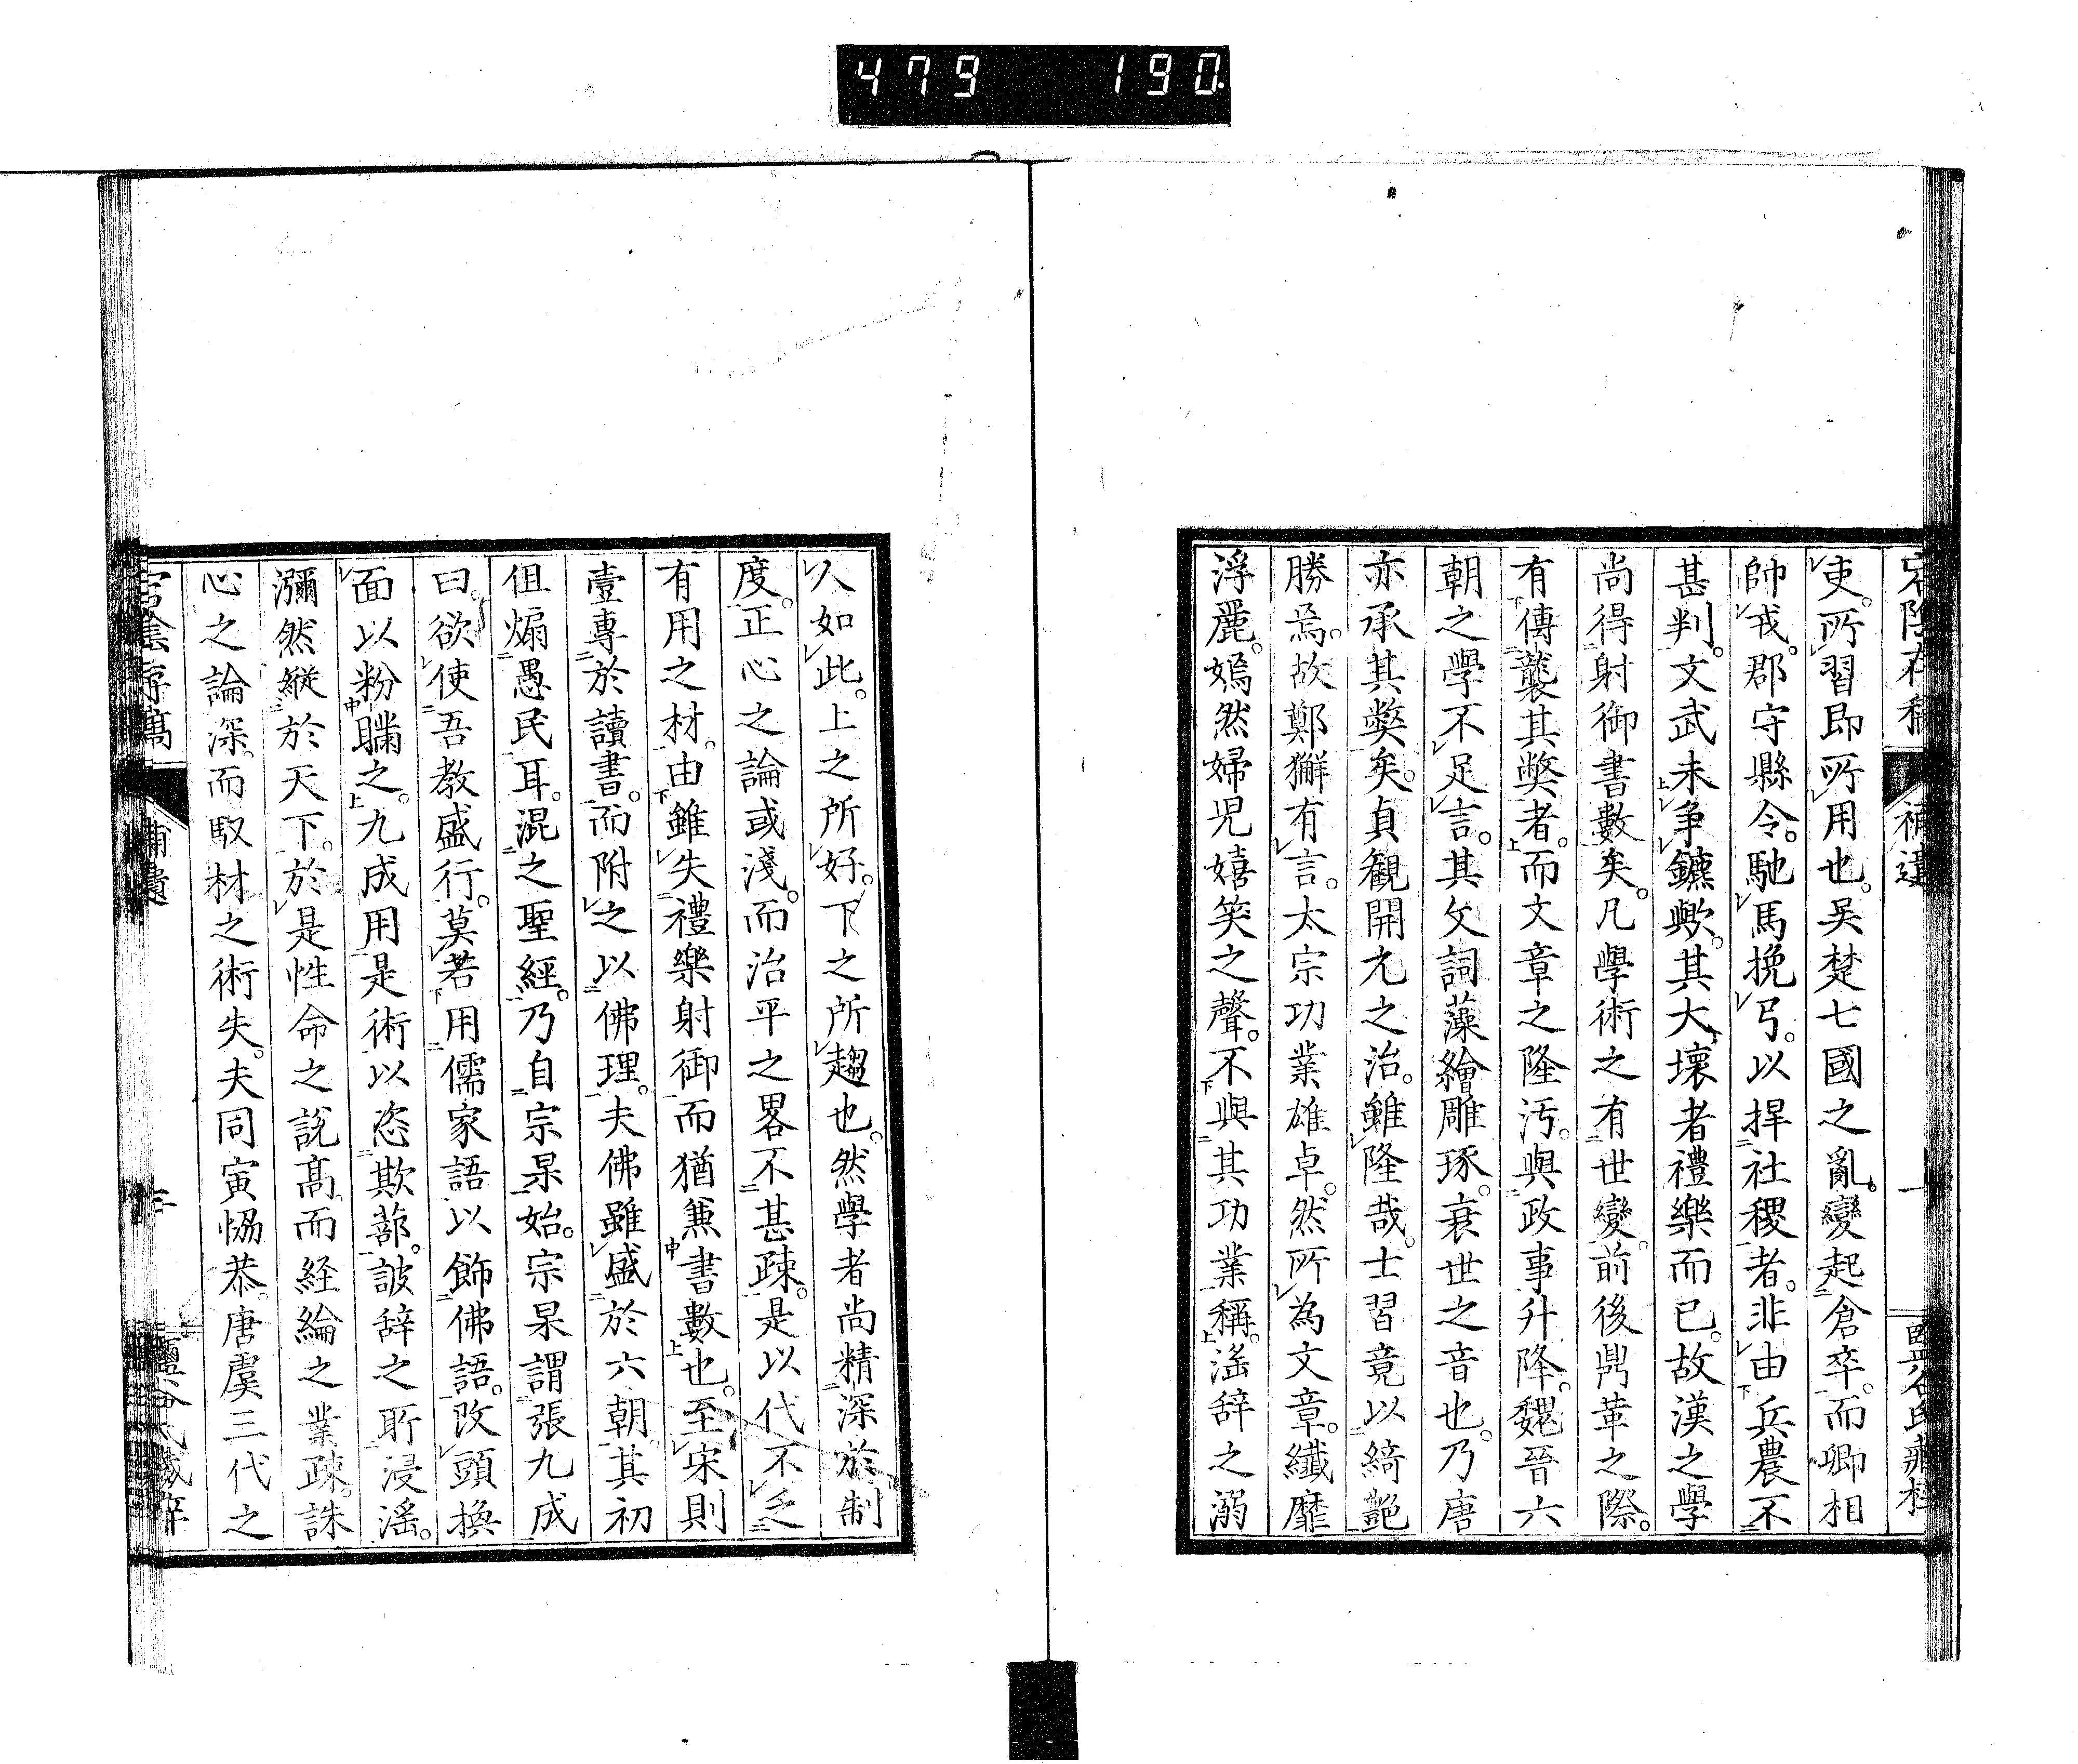 479 190.
宕陰存稿 補遺 一
吏。所習即所用也。吴楚七國之亂。變起倉卒。而卿相
帥戎。郡守縣令。馳馬挽弓。以捍社稷者。非由兵農不
甚判。文武未爭鑣歟。其大壞者禮樂而已。故漢之學
尚得射御書數矣。凡學術之有世變。前後鼎革之際。
有傳襲其獘者。而文章之隆汚。與政事升降。魏晉六
朝之學不足言。其文詞藻繪雕琢。衰世之音也。乃唐
亦承其獘矣。貞觀開元之治。雖隆哉。士習竟以綺艶
勝焉。故鄭獬有言。太宗功業雄卓。然所為文章。纖靡
浮麗。嫣然婦兒嬉笑之聲。不與其功業稱。滛辞之溺
人如此。上之所好。下之所趨也。然學者尚精深於制
度。正心之論或淺。而治平之畧不甚疎。是以代不乏
有用之材。由雖失禮樂射御而猶兼書數也。至宋則
壹專於讀書。而附之以佛理。夫佛雖盛於六朝。其初
伹煽愚民耳。混之聖經。乃自宗杲始。宗杲謂張九成
曰。欲使吾教盛行。莫若用儒家語以飾佛語。改頭換
面以粉矇之。九成用是術以恣欺蔀。詖辞之所浸滛。
瀰然縦於天下。於是性命之説髙。而経綸之業疎。誅
心之論深。而馭材之術失。夫同寅恊恭。唐虞三代之
宕陰存稿 補遺